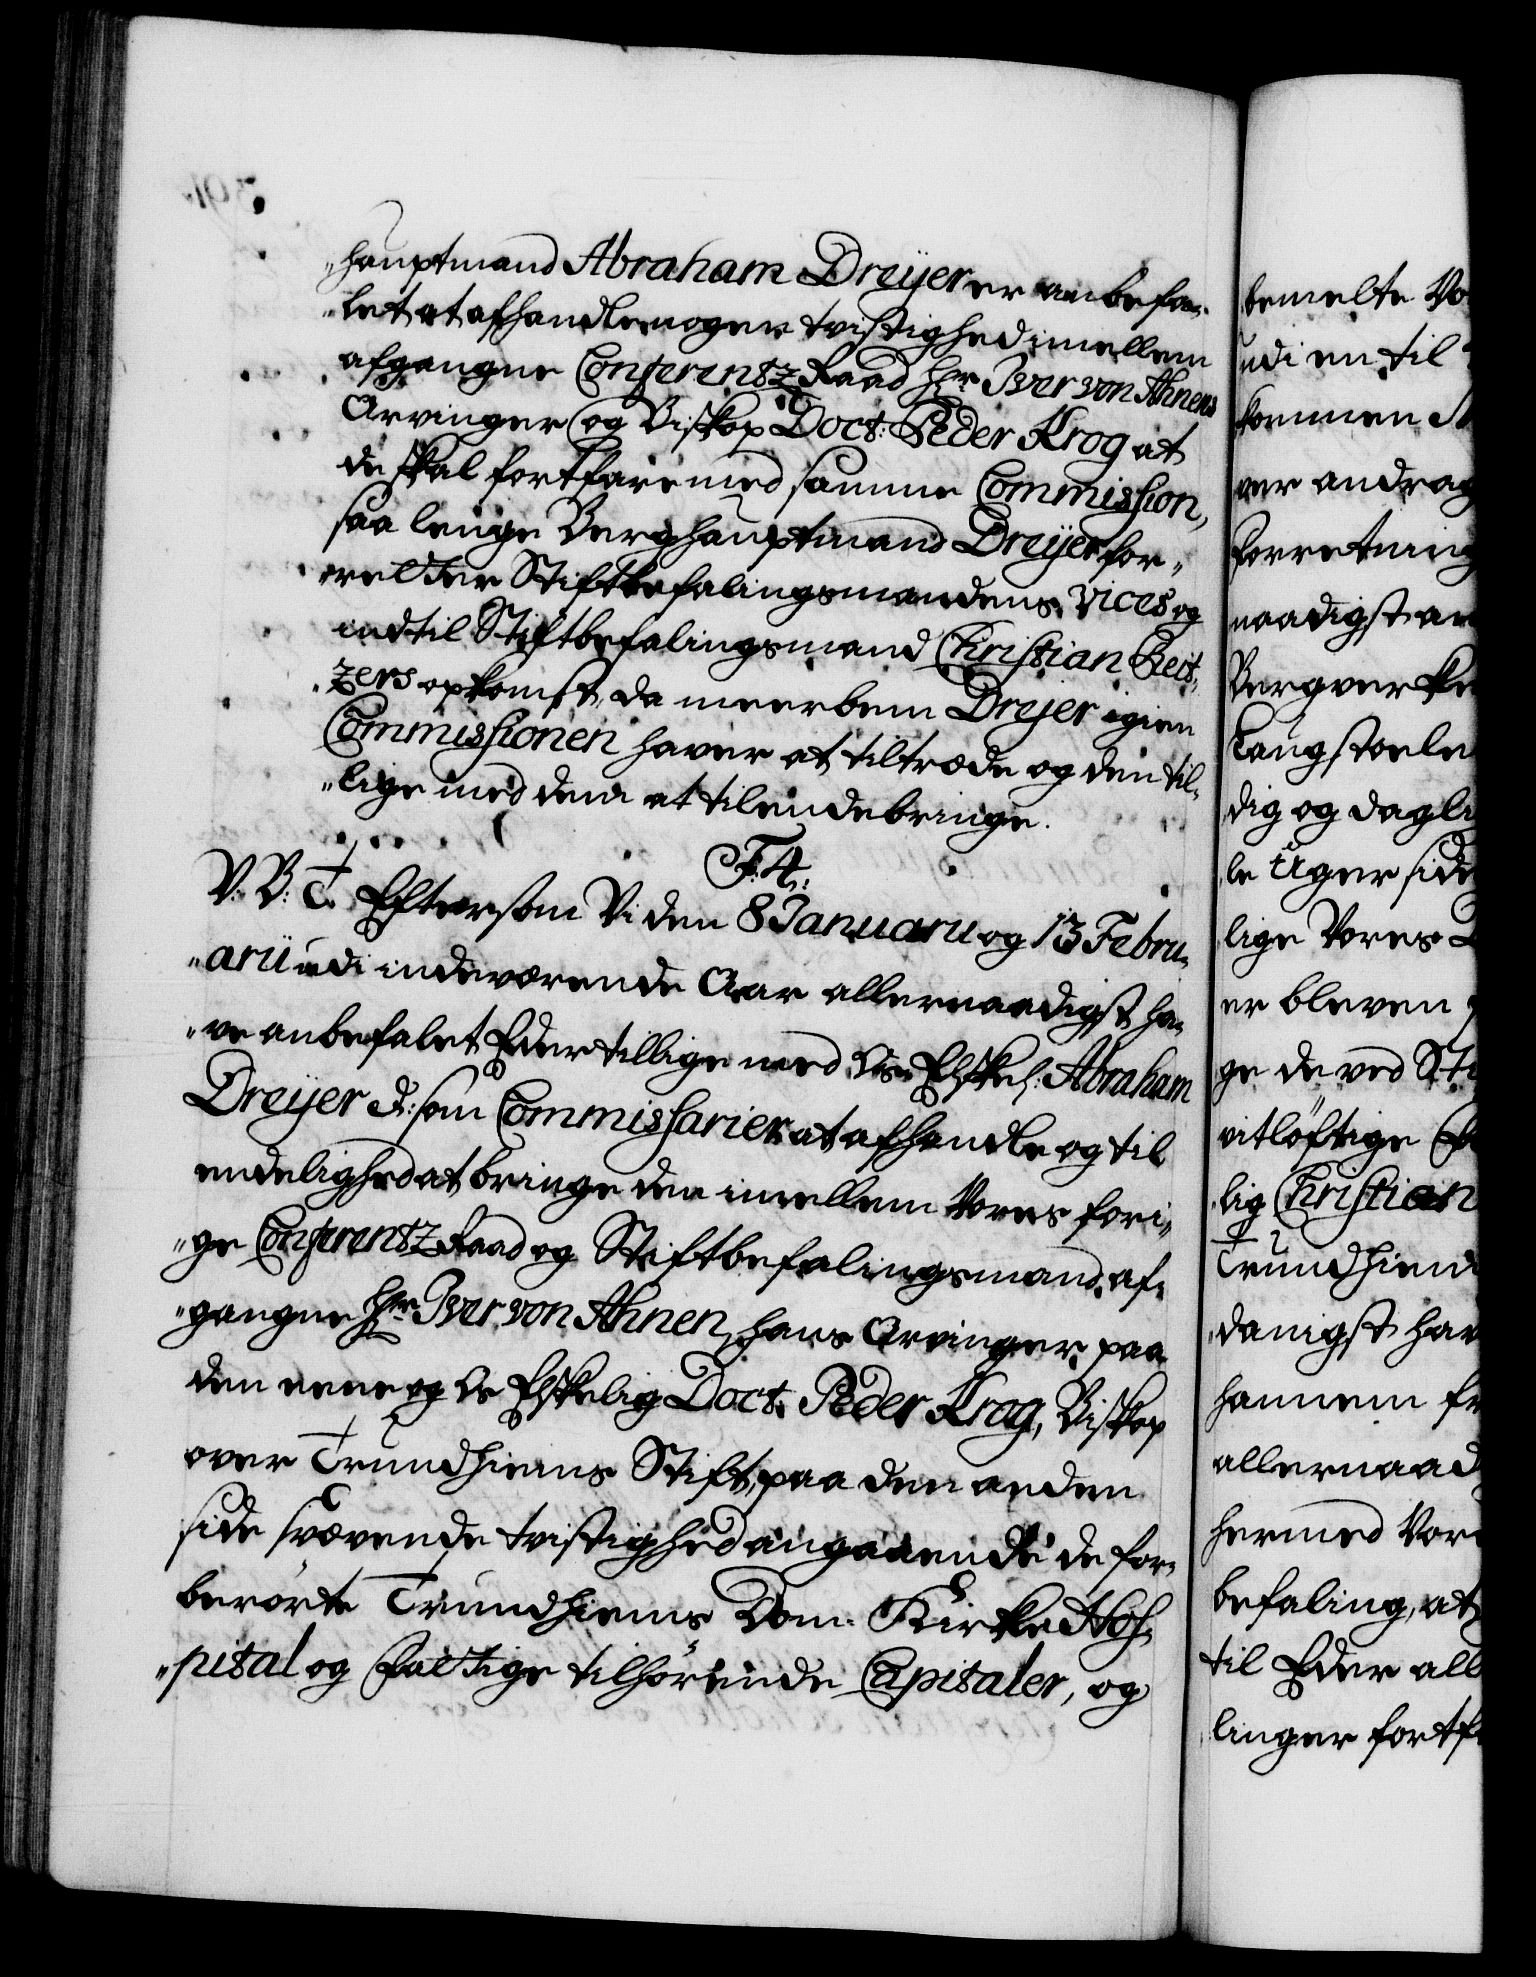 "hauptmand Abraham Dreÿer er anbefa-
"let at afhandle nogen tvistighed imellem
afgangne Conferentz Raad Hr. Iver von Ahnens
Arvinger og Biskop Doct: Peder Krog at
de skal fortfare med samme Commission,
saa lenge Berghauptmand Dreÿer for-
"retter Stiftbefalingsmandens vices og
indtil Stiftbefalingsmand Christian Reit-
"zers opkomst, da meerbem Dreÿer igien
Commissionen haver at tiltræde og den til-
"lige med dem at tilendebringe.
F: 4.
V. B: T. Eftersom Vi den 8 Januarii og 13 Febru-
"arii udi indeværende Aar allernaadigst ha-
"ve anbefalet Eder tillige med Os Elskel: Abraham
Dreÿer d: som Commissarier at afhandle og til
endelighed at bringe den imellem Vores fori-
"ge Conferentz Raad og Stiftbefalingsmand, af-
"gangne Hr. Iver von Ahnen, hans Arvinger, paa
den eene og Os Elskelig Doct. Peder Krog, Biskop
over Trundhiems Stift, paa den anden
side svævende tvistighed angaaende de for-
berörte Trundhiems Dom-Kirke Hos-
"pital og Fattige tilhörende Capitaler, og
bemelte Vo
udi en til
kommen
ver andrag
forretning
naadigst an
Bergverke
Langstoele
dig og dagli
le Uger side
lige Vores
er bleven
ge de ved Sti
vitlöftige
lig Christian
Trundhiem
danigst hav
hannem fr
allernaad
hermed Vor
befaling, at
til Eder all
linger fortf